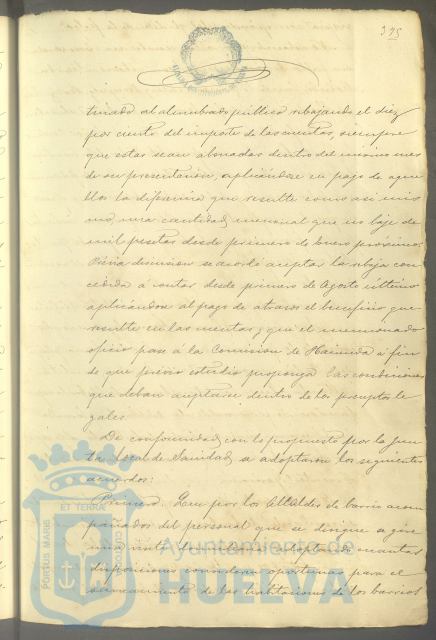 395
tinado al alumbrado público rebajando el diez
por ciento del importe de las cuentas, siempre
que estas sean abonadas dentro del mismo mes
de su presentación, aplicándose en pago de aque
llos la diferencia que resulte como así mis
mo, una cantidad mensual que no baje de
mil pesetas desde primero de Enero próximo.
Prévia discusión se acordó aceptar la rebaja con
cedida á contar desde primero de Agosto último
aplicándose al pago de atrasos el beneficio que
resulte en las cuentas, y que el mencionado
oficio pase á la Comision de Hacienda á fin
de que prévio estudio proponga las condiciones
que deban aceptarse dentro de los preceptos le
gales.
De conformidad con lo propuesto por la Jun
ta local de Sanidad, se adoptaron los siguientes
acuerdos:
Primero. Que por los Alcaldes de barrio acom
pañados del personal que se designe se gire
una visita adoptando cuantas
disposiciones consideren oportunas para el
saneamiento de las habitaciones de los barrios
PORTUS MARIS
ET TERRAE
CUSTODIA
Ayuntamiento de
HUELVA